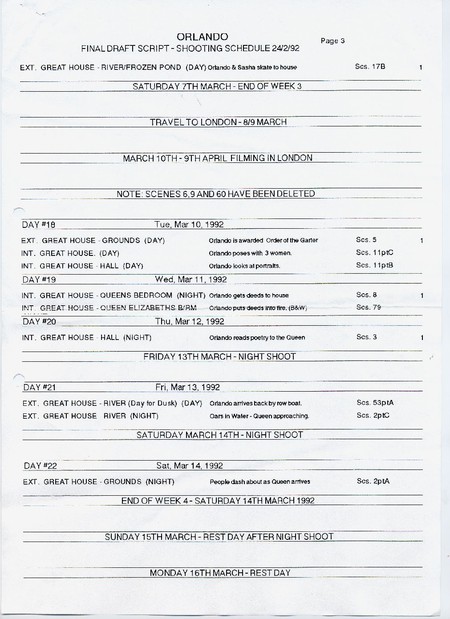 ORLANDO
FINAL DRAFT SCRIPT - SHOOTING SCHEDULE 24/2/92 Page 3
EXT. GREAT HOUSE - RIVER/FROZEN POND (DAY) Orlando & Sasha skate to house Scs. 17B 1
SATURDAY 7TH MARCH - END OF WEEK 3
TRAVEL TO LONDON - 8/9 MARCH
MARCH 10TH - 9TH APRIL FILMING IN LONDON
NOTE: SCENES 6,9 AND 60 HAVE BEEN DELETED
DAY #18 Tue, Mar 10, 1992
EXT. GREAT HOUSE - GROUNDS (DAY) Orlando is awarded Order of the Garter Scs. 5 1
INT. GREAT HOUSE. (DAY) Orlando poses with 3 women. Scs. 11ptC
INT. GREAT HOUSE - HALL (DAY) Orlando looks at portraits. Scs. 11ptB
DAY #19 Wed, Mar 11, 1992
INT. GREAT HOUSE - QUEENS BEDROOM (NIGHT) Orlando gets deeds to house Scs. 8 1
INT. GREAT HOUSE - QUEEN ELIZABETHS B/RM Orlando puts deeds into fire, (B&W) Scs. 79
DAY #20 Thu, Mar 12, 1992
INT. GREAT HOUSE - HALL (NIGHT) Orlando reads poetry to the Queen Scs. 3 1
FRIDAY 13TH MARCH - NIGHT SHOOT
DAY #21 Fri, Mar 13, 1992
EXT. GREAT HOUSE - RIVER (Day for Dusk) (DAY) Orlando arrives back by row boat. Scs. 53ptA
EXT. GREAT HOUSE RIVER (NIGHT) Oars in Water - Queen approaching. Scs. 2ptC
SATURDAY MARCH 14TH - NIGHT SHOOT
DAY #22 Sat, Mar 14, 1992
EXT. GREAT HOUSE - GROUNDS (NIGHT) People dash about as Queen arrives Scs. 2ptA
END OF WEEK 4 - SATURDAY 14TH MARCH 1992
SUNDAY 15TH MARCH - REST DAY AFTER NIGHT SHOOT
MONDAY 16TH MARCH - REST DAY